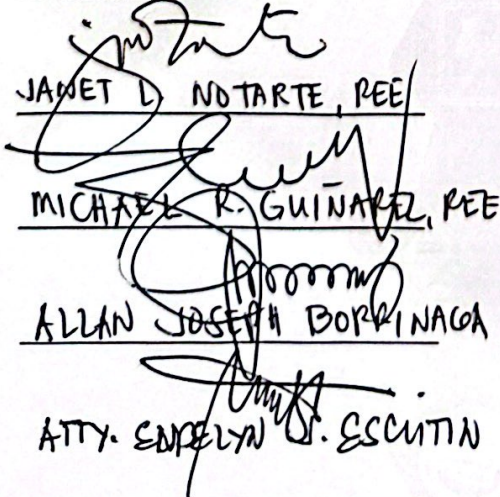 JANET L. NOTARTE, REE
MICHAEL R. GUIÑAREZ, REE
ALLAN JOSEPH BORRINAGA
ATTY. ESCUTIN